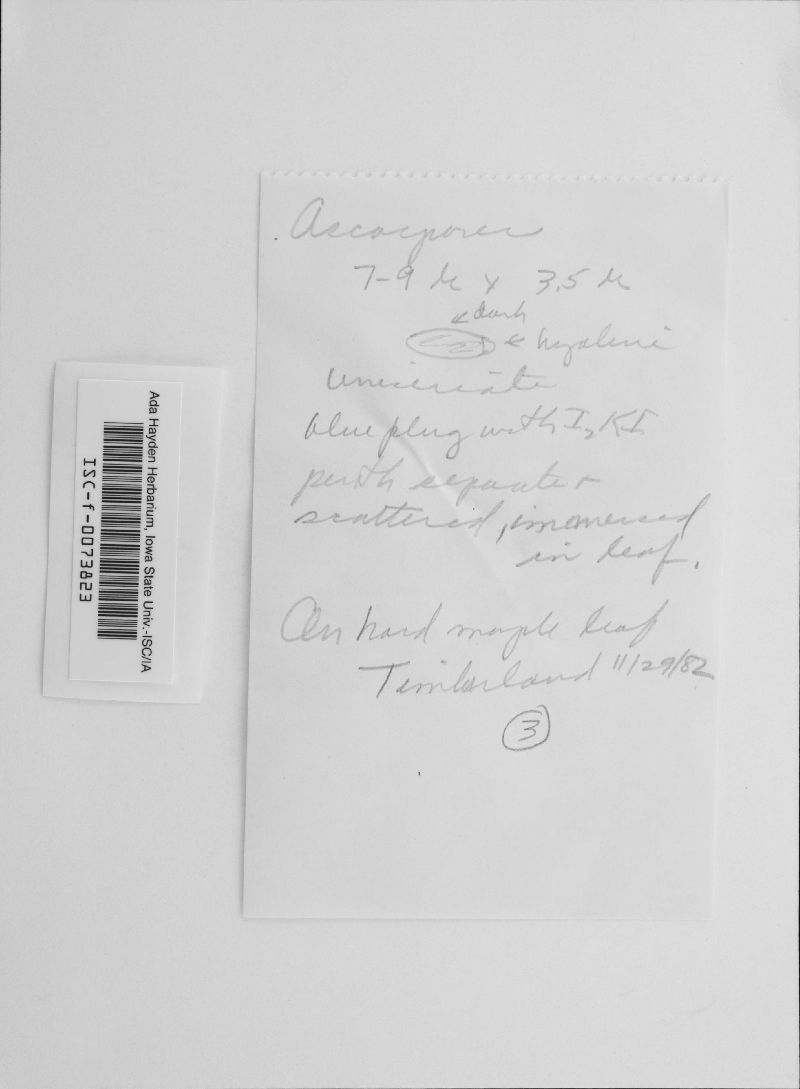 Ascospores
7-9 µ x 3.5 µ
↙ dark
← hyaline
uniseriate
blue plug with I2KI
perith separate +
scattered, immersed
in leaf.
On hard maple leaf
Timberland 11/29/82
3
Ada Hayden Herbarium, Iowa State Univ.-ISC/IA
ISC-f-0073823